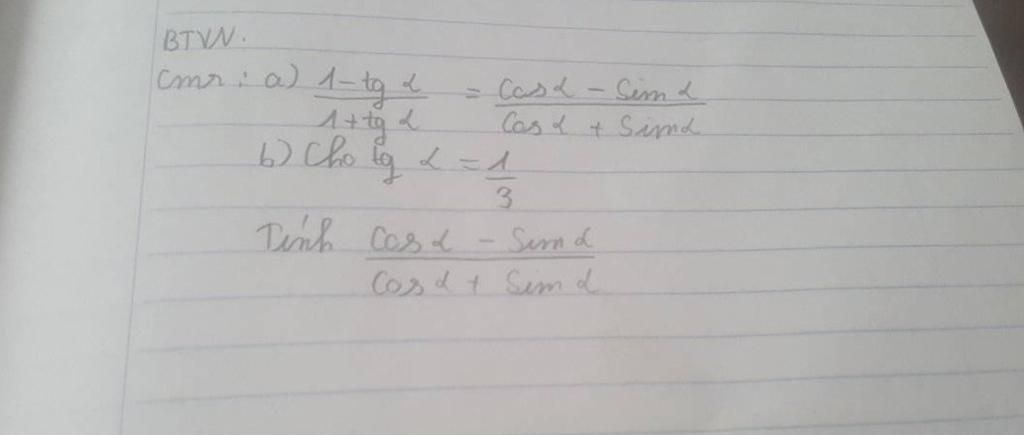 BTVN.
Cmr : a) \frac{1 - tg α}{1 + tg α} = \frac{Cosα - Sinα}{Cosα + Sinα}
b) Cho tg α = \frac{1}{3}
Tính \frac{Cosα - Sinα}{Cosα + Sinα}